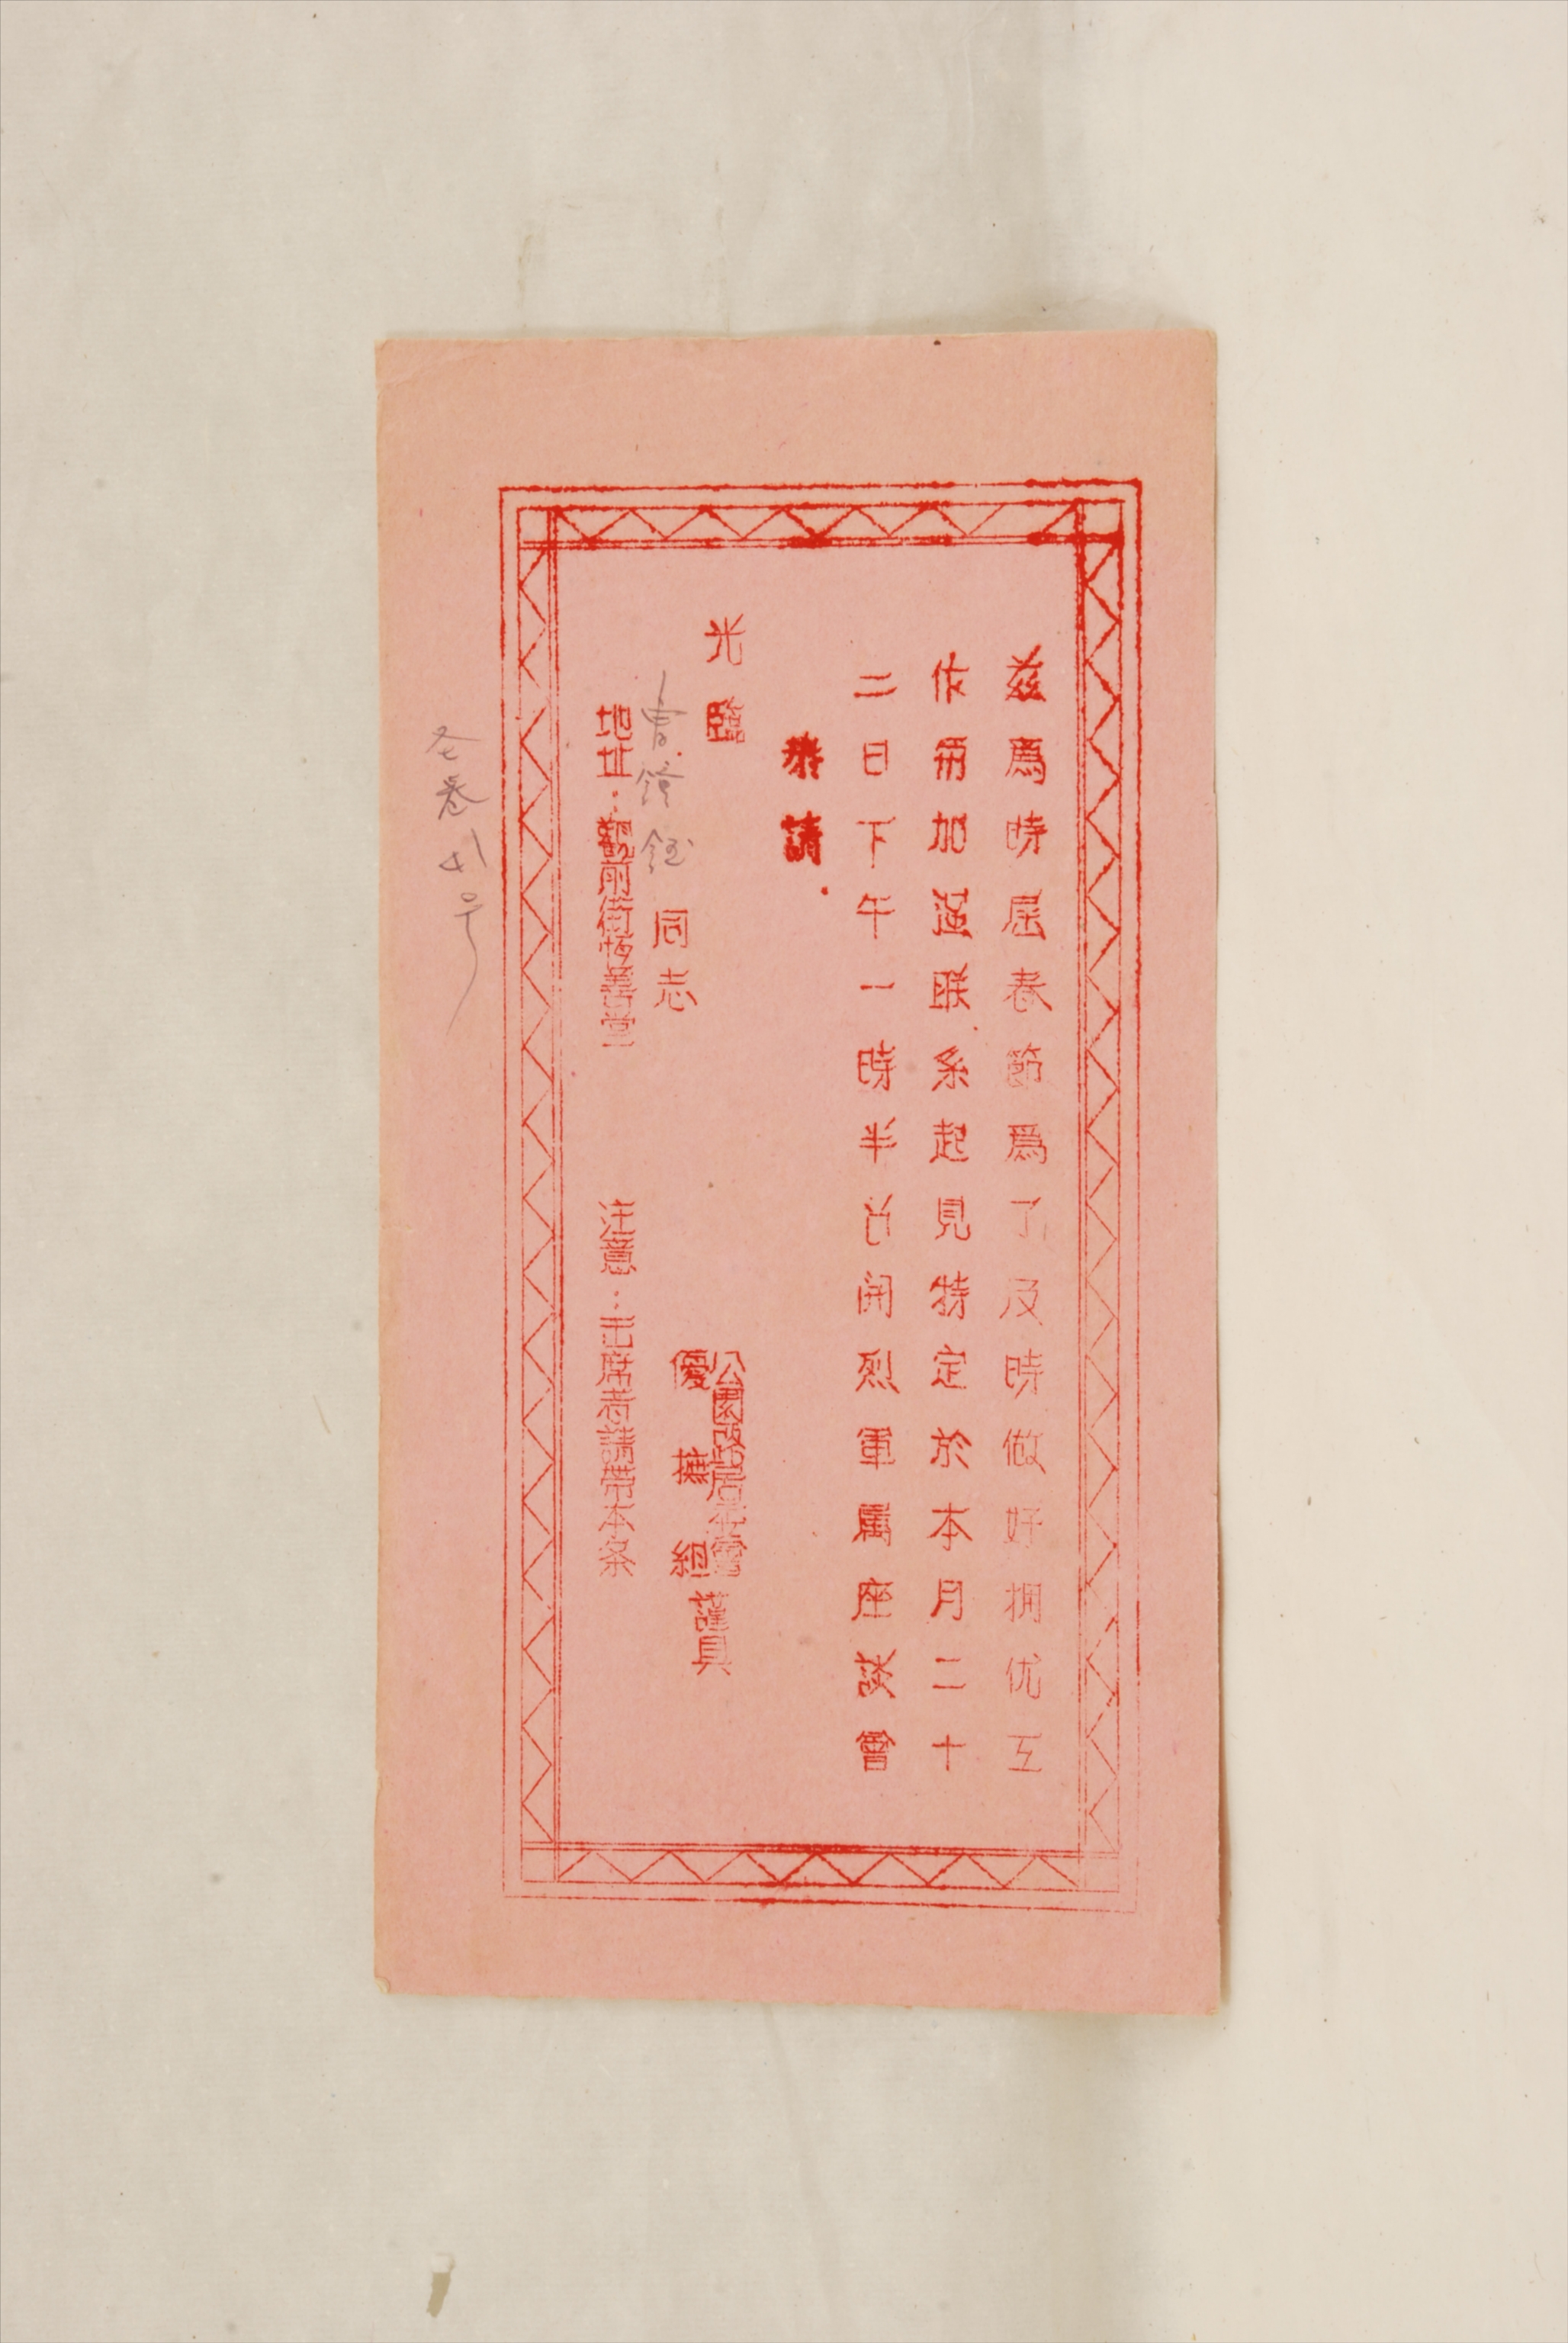 茲爲時屆春節爲了及時做好拥优工
作而加强联系起見特定於本月二十
二日下午一時半召開烈軍属座談會
恭請
光臨
同志
公園路居委會
優撫組
謹具
地址：觀前街恆善堂
注意：出席者請帶本条
巷41号